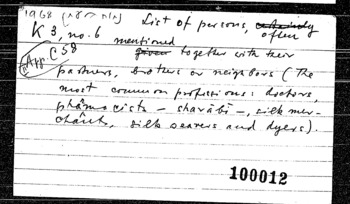 1968
K 3, no. 6 List of persons, often
App. C 58 mentioned together with their
partners, brothers or neighbors (The
most common professions: doctors,
phâmacists – sharābī –, silk mer-
chânts, silk weavers and dyers).
100012